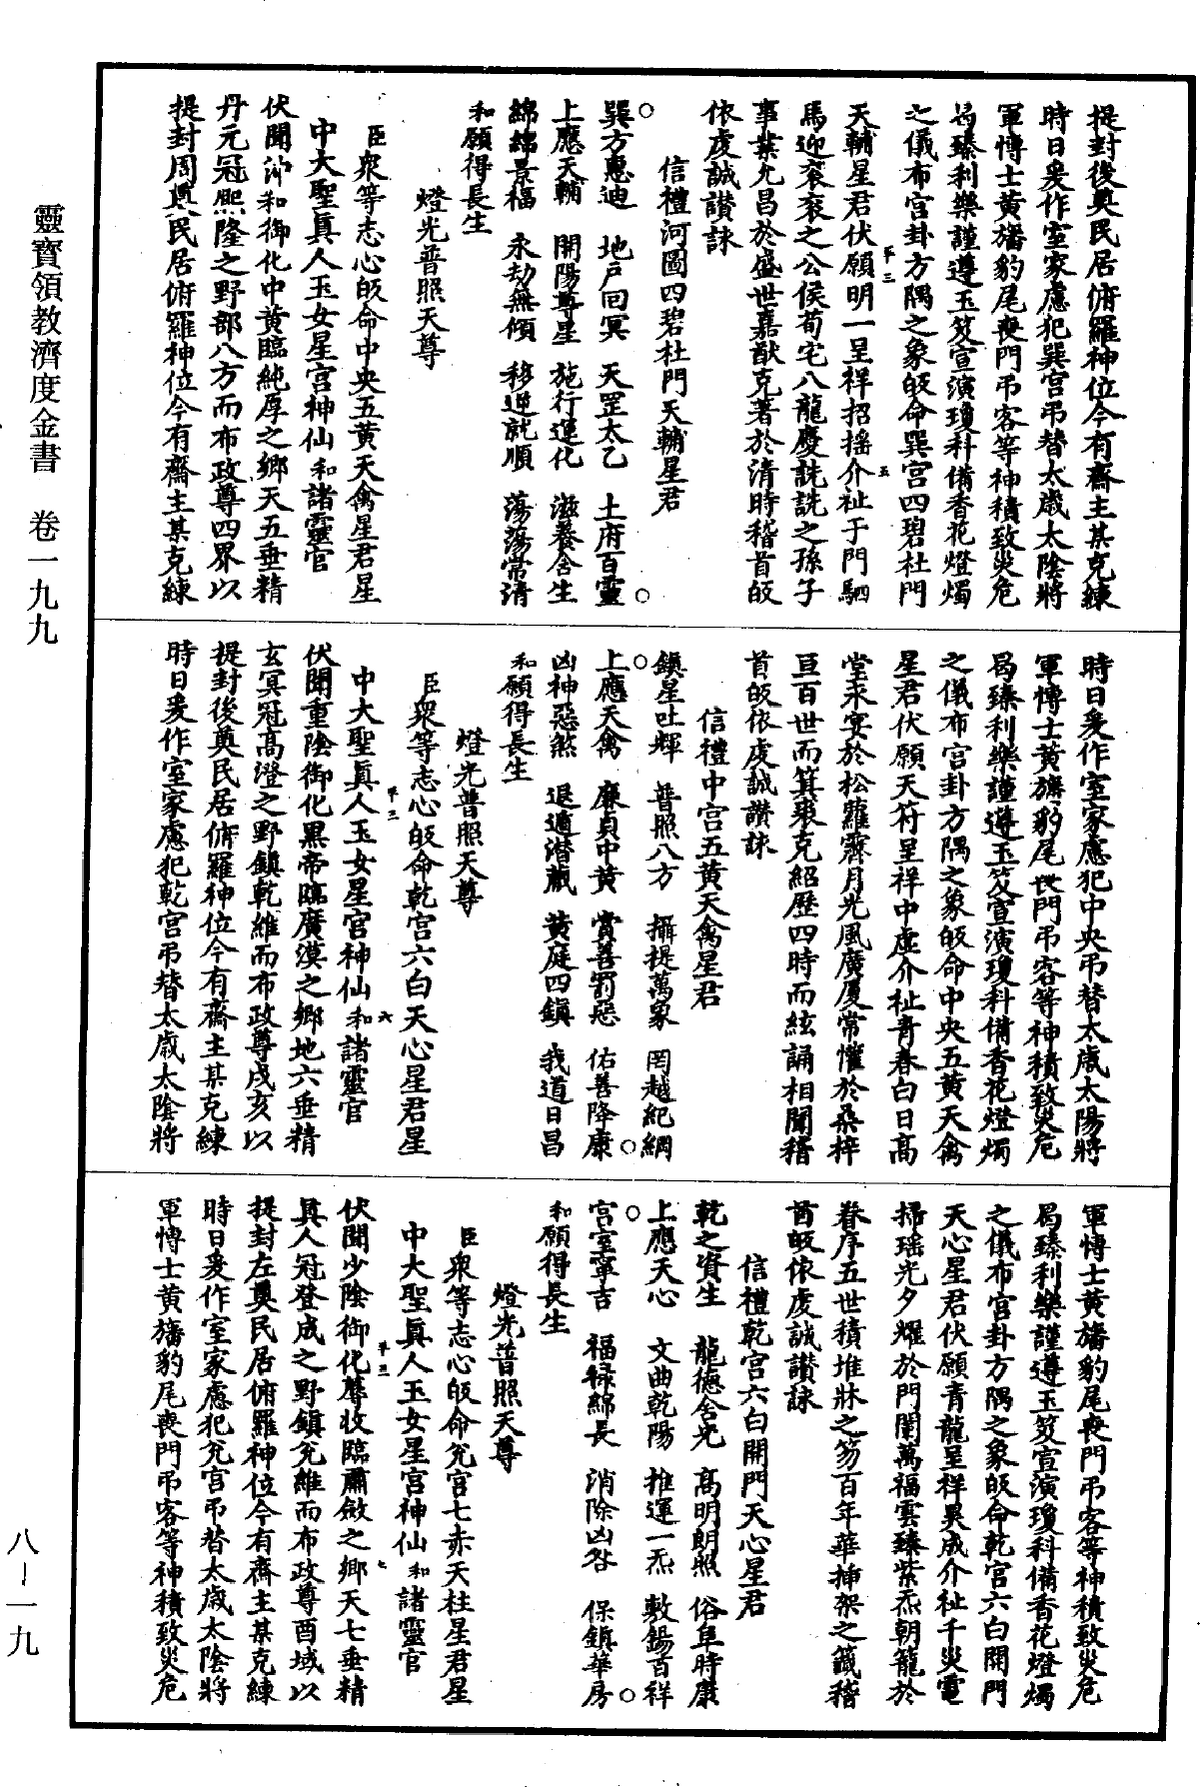 靈寶領教濟度金書　卷一九九
提封後奠民居俯羅神位今有齋主某克練
時日爰作室家慮犯巽宮弔替太歲太陰將
軍博士黃旛豹尾喪門弔客等神積致災危
曷臻利樂謹遵玉笈宣演瓊科備香花燈燭
之儀布宮卦方隅之象皈命巽宮四碧杜門
天輔星君伏願明一呈祥招搖介祉于門駟
馬迎袞袞之公侯荀宅八龍慶詵詵之孫子
事業允昌於盛世嘉猷克著於清時稽首皈
依虔誠讚詠
信禮河圖四碧杜門天輔星君
巽方惠迪　地戶回冥　天罡太乙　土府百靈
上應天輔　開陽尊星　施行運化　滋養含生
綿綿景福　永劫無傾　移逆就順　蕩蕩常清
和願得長生
燈光普照天尊
臣衆等志心皈命中央五黃天禽星君星
中大聖眞人玉女星宮神仙和諸靈官
伏聞沖和御化中黃臨純厚之鄉天五垂精
丹元冠熙隆之野部八方而布政尊四界以
提封周奠民居俯羅神位今有齋主某克練
時日爰作室家慮犯中央弔替太歲太陽將
軍博士黃旛豹尾喪門弔客等神積致災危
曷臻利樂謹遵玉笈宣演瓊科備香花燈燭
之儀布宮卦方隅之象皈命中央五黃天禽
星君伏願天符呈祥中虛介祉青春白日高
堂永安於松蘿霽月光風廣厦常懽於桑梓
亘百世而箕裘克紹歷四時而絃誦相聞稽
首皈依虔誠讚詠
信禮中宮五黃天禽星君
鎮星吐輝　普照八方　攝提萬象　罔越紀綱
上應天禽　廉貞中黃　賞善罰惡　佑善降康
凶神惡煞　退遁潛藏　黃庭四鎮　我道日昌
和願得長生
燈光普照天尊
臣衆等志心皈命乾宮六白天心星君星
中大聖眞人玉女星宮神仙和諸靈官
伏聞重陰御化黑帝臨廣漠之鄉地六垂精
玄冥冠高澄之野鎮乾維而布政尊戌亥以
提封後奠民居俯羅神位今有齋主某克練
時日爰作室家慮犯乾宮弔替太歲太陰將
軍博士黃旛豹尾喪門弔客等神積致災危
曷臻利樂謹遵玉笈宣演瓊科備香花燈燭
之儀布宮卦方隅之象皈命乾宮六白開門
天心星君伏願青龍呈祥異成介祉千災電
掃瑤光夕耀於門闌萬福雲臻紫炁朝籠於
眷序五世積堆牀之笏百年華插架之籤稽
首皈依虔誠讚詠
信禮乾宮六白開門天心星君
乾之資生　龍德含光　高明朗照　俗阜時康
上應天心　文曲乾陽　推運一炁　敷錫百祥
宮室寧吉　福祿綿長　消除凶咎　保鎮華房
和願得長生
燈光普照天尊
臣衆等志心皈命兌宮七赤天柱星君星
中大聖眞人玉女星宮神仙和諸靈官
伏聞少陰御化蓐收臨肅斂之鄉天七垂精
眞人冠登成之野鎮兌維而布政尊酉域以
提封左奠民居俯羅神位今有齋主某克練
時日爰作室家慮犯兌宮弔替太歲太陰將
軍博士黃旛豹尾喪門弔客等神積致災危
八—一九